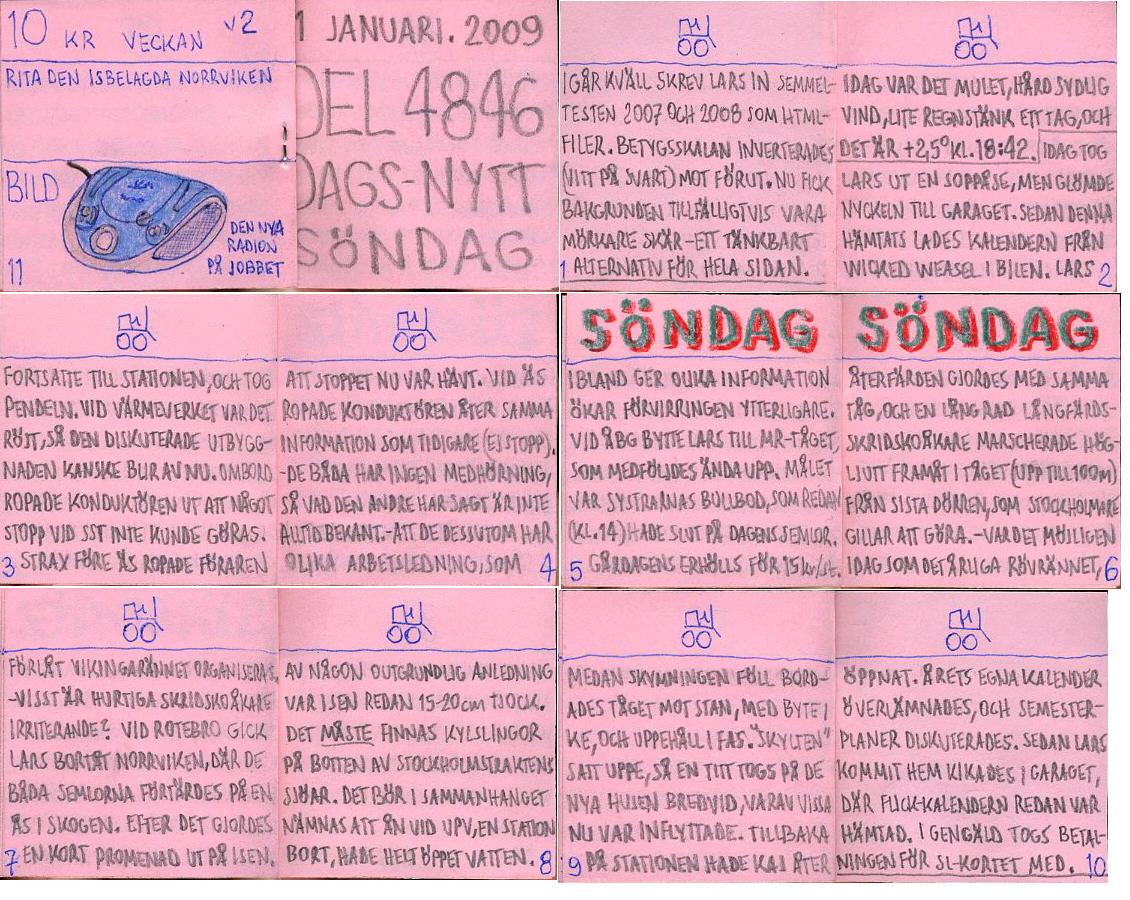 10 KR VECKAN v2
RITA DEN ISBELAGDA NORRVIKEN
BILD
DEN NYA
RADION
PÅ JOBBET
11
1 JANUARI. 2009
DEL 4846
DAGS-NYTT
SÖNDAG
IGÅR KVÄLL SKREV LARS IN SEMMEL-
TESTEN 2007 OCH 2008 SOM HTML-
FILER. BETYGSSKALAN INVERTERADES
(VITT PÅ SVART) MOT FÖRUT. NU FICK
BAKGRUNDEN TILLFÄLLIGTVIS VARA
MÖRKARE SKÄR-ETT TÄNKBART
1 ALTERNATIV FÖR HELA SIDAN.
IDAG VAR DET MULET, HÅRD SYDLIG
VIND, LITE REGNSTÄNK ETT TAG, OCH
DET ÄR +2,5° KL. 18:42. IDAG TOG
LARS UT EN SOPPÅSE, MEN GLÖMDE
NYCKELN TILL GARAGET. SEDAN DENNA
HÄMTATS LADES KALENDERN FRÅN
WICKED WEASEL I BILEN. LARS 2
FORTSATTE TILL STATIONEN, OCH TOG
PENDELN. VID VÄRMEVERKET VAR DET
RÖJT, SÅ DEN DISKUTERADE UTBYGG-
NADEN KANSKE BLIR AV NU. OMBORD
ROPADE KONDUKTÖREN UT ATT NÅGOT
STOPP VID SST INTE KUNDE GÖRAS.
3 STRAX FÖRE ÄS ROPADE FÖRAREN
ATT STOPPET NU VAR HÄVT. VID ÄS
ROPADE KONDUKTÖREN ÅTER SAMMA
INFORMATION SOM TIDIGARE (EJ STOPP).
-DE BÅDA HAR INGEN MEDHÖRNING,
SÅ VAD DEN ANDRE HAR SAGT ÄR INTE
ALLTID BEKANT.-ATT DE DESSUTOM HAR
OLIKA ARBETSLEDNING, SOM 4
SÖNDAG
IBLAND GER OLIKA INFORMATION
ÖKAR FÖRVIRRINGEN YTTERLIGARE.
VID ÅBG BYTTE LARS TILL MR-TÅGET,
SOM MEDFÖLJDES ÄNDA UPP. MÅLET
VAR SYSTRARNAS BULLBOD, SOM REDAN
(KL.14) HADE SLUT PÅ DAGENS SEMLOR.
5 GÅRDAGENS ERHÖLLS FÖR 15 kr/st.
SÖNDAG
ÅTERFÄRDEN GJORDES MED SAMMA
TÅG, OCH EN LÅNG RAD LÅNGFÄRDS-
SKRIDSKOÅKARE MARSCHERADE HÖG-
LJUTT FRAMÅT I TÅGET (UPP TILL 100m)
FRÅN SISTA DÖRREN, SOM STOCKHOLMARE
GILLAR ATT GÖRA.-VAR DET MÖJLIGEN
IDAG SOM DET ÅRLIGA RÖVRÄNNET, 6
FÖRLÅT VIKINGARÄNNET ORGANISERAS,
-VISST ÄR HURTIGA SKRIDSKOÅKARE
IRRITERANDE? VID ROTEBRO GICK
LARS BORTÅT NORRVIKEN, DÄR DE
BÅDA SEMLORNA FÖRTÄRDES PÅ EN
ÅS I SKOGEN. EFTER DET GJORDES
7 EN KORT PROMENAD UT PÅ ISEN.
AV NÅGON OUTGRUNDLIG ANLEDNING
VAR ISEN REDAN 15-20 cm TJOCK.
DET MÅSTE FINNAS KYLSLINGOR
PÅ BOTTEN AV STOCKHOLMSTRAKTENS
SJÖAR. DET BÖR I SAMMANHANGET
NÄMNAS ATT ÅN VID UPV, EN STATION
BORT, HADE HELT ÖPPET VATTEN. 8
MEDAN SKYMNINGEN FÖLL BORD-
ADES TÅGET MOT STAN, MED BYTE I
KE, OCH UPPEHÅLL I FAS. "SKYLTEN"
SATT UPPE, SÅ EN TITT TOGS PÅ DE
NYA HUSEN BREDVID, VARAV VISSA
NU VAR INFLYTTADE. TILLBAKA
9 PÅ STATIONEN HADE KAJ ÅTER
ÖPPNAT. ÅRETS EGNA KALENDER
ÖVERLÄMNADES, OCH SEMESTER-
PLANER DISKUTERADES. SEDAN LARS
KOMMIT HEM KIKADES I GARAGET,
DÄR FLICK-KALENDERN REDAN VAR
HÄMTAD. I GENGÄLD TOGS BETAL-
NINGEN FÖR SL-KORTET MED. 10